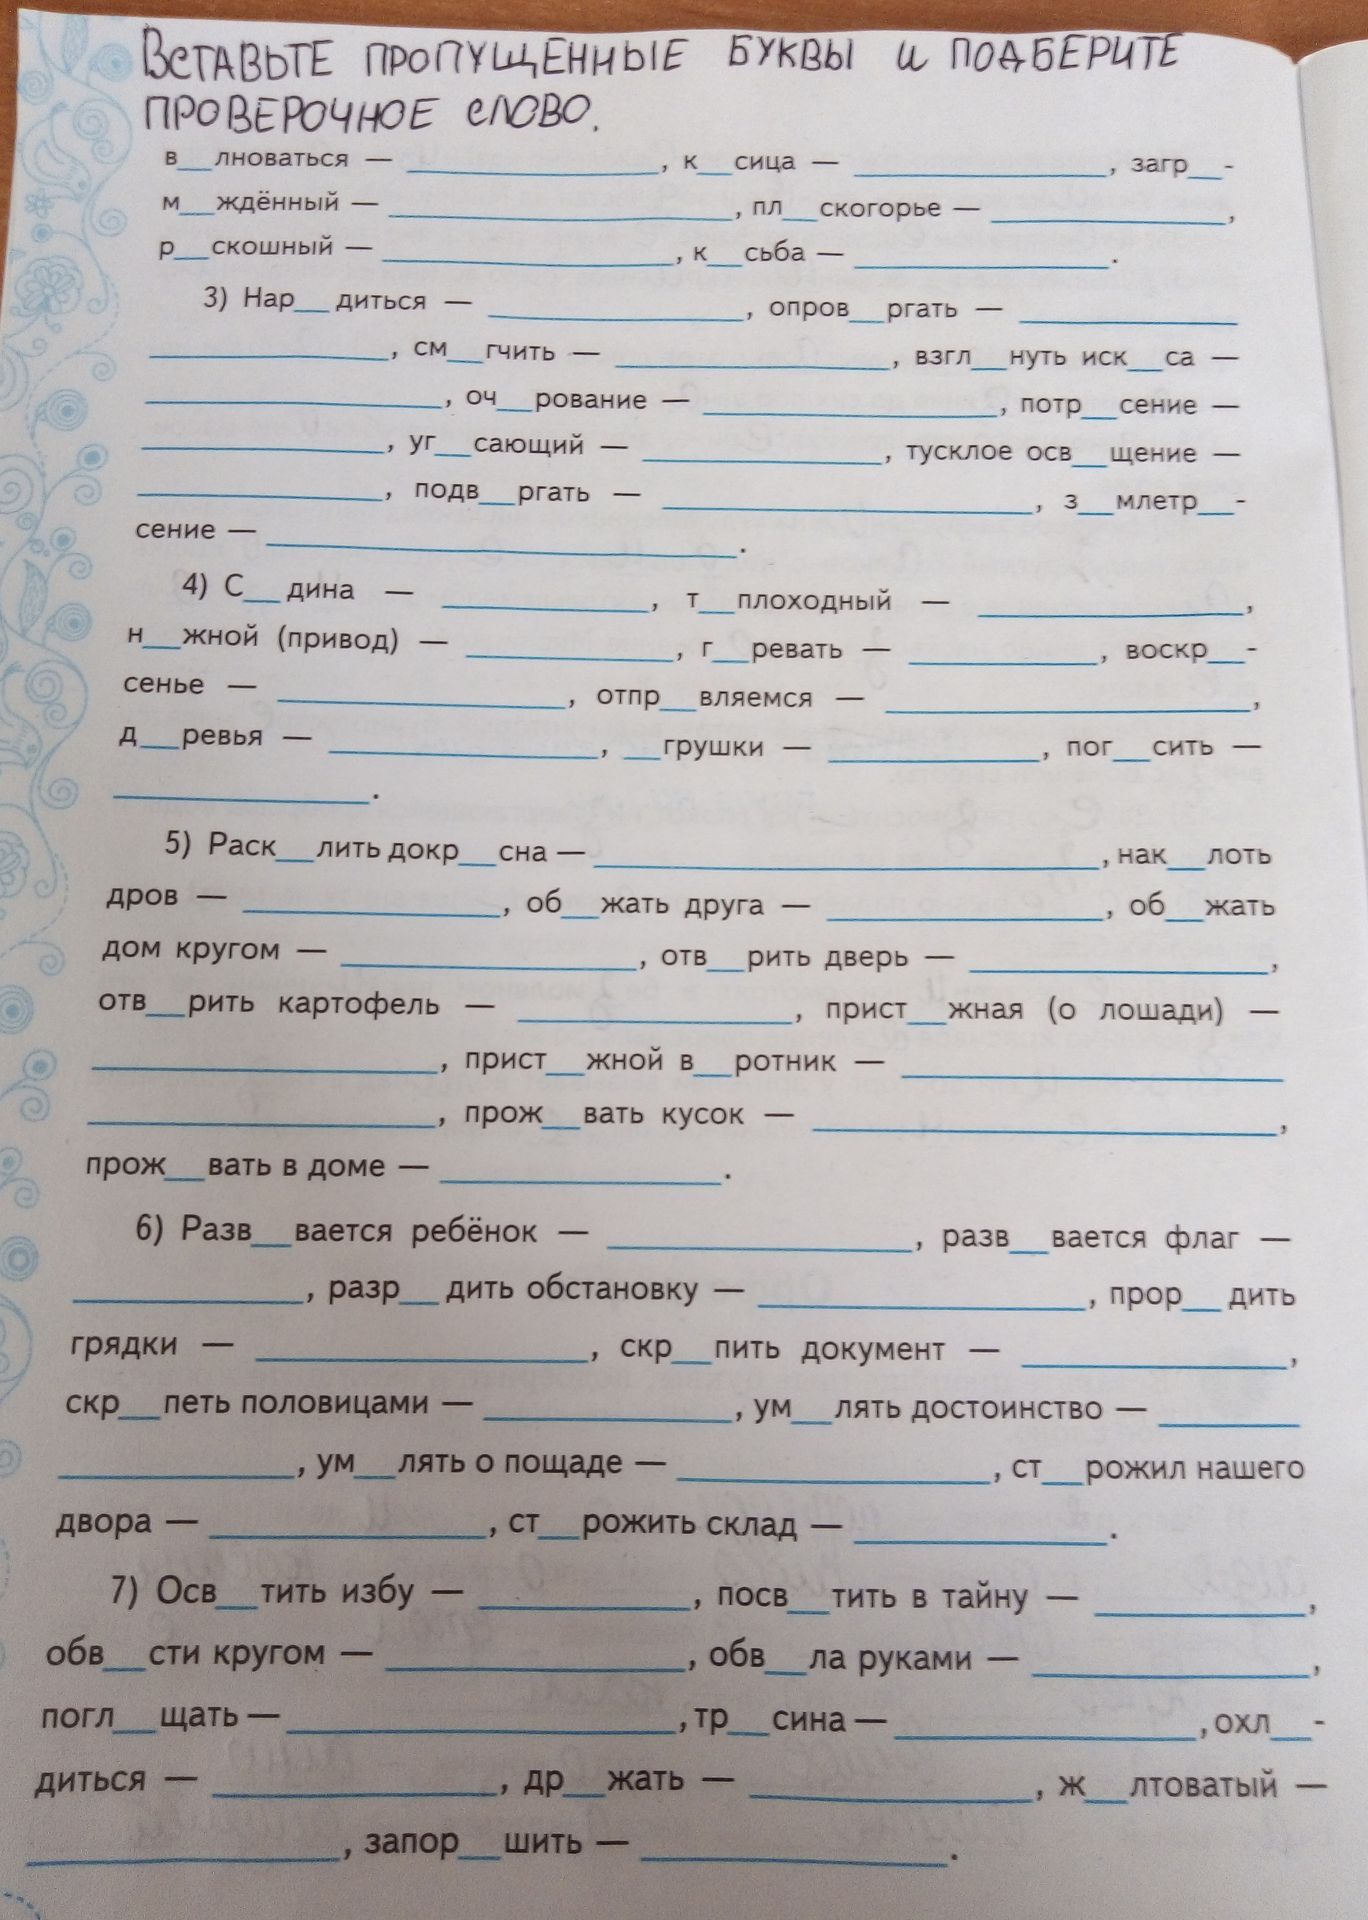 ВСТАВЬТЕ ПРОПУЩЕННЫЕ БУКВЫ И ПОДБЕРИТЕ
ПРОВЕРОЧНОЕ СЛОВО.
в__лноваться — ____________, к__сица — ____________, загр__-
м__ждённый — ____________, пл__скогорье — ____________,
р__скошный — ____________, к__сьба — ____________.
3) Нар__диться — ____________, опров__ргать — ____________
____________, см__гчить — ____________, взгл__нуть иск__са —
____________, оч__рование — ____________, потр__сение —
____________, уг__сающий — ____________, тусклое осв__щение —
____________, подв__ргать — ____________, з__млетр__-
сение — ____________.
4) С__дина — ____________, т__плоходный — ____________,
н__жной (привод) — ____________, г__ревать — ____________, воскр__-
сенье — ____________, отпр__вляемся — ____________,
д__ревья — ____________, __грушки — ____________, пог__сить —
____________.
5) Раск__лить докр__сна — ____________, нак__лоть
дров — ____________, об__жать друга — ____________, об__жать
дом кругом — ____________, отв__рить дверь — ____________,
отв__рить картофель — ____________, прист__жная (о лошади) —
____________, прист__жной в__ротник — ____________
____________, прож__вать кусок — ____________,
прож__вать в доме — ____________.
6) Разв__вается ребёнок — ____________, разв__вается флаг —
____________, разр__дить обстановку — ____________, прор__дить
грядки — ____________, скр__пить документ — ____________,
скр__петь половицами — ____________, ум__лять достоинство — ____________
____________, ум__лять о пощаде — ____________, ст__рожил нашего
двора — ____________, ст__рожить склад — ____________.
7) Осв__тить избу — ____________, посв__тить в тайну — ____________,
обв__сти кругом — ____________, обв__ла руками — ____________,
погл__щать — ____________, тр__сина — ____________, охл__-
диться — ____________, др__жать — ____________, ж__лтоватый —
____________, запор__шить — ____________.